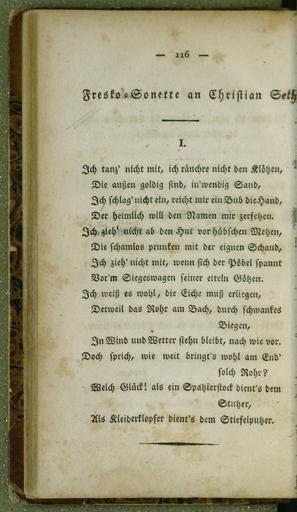 — 116 —
Fresko-Sonette an Christian Seth
I.
Ich tanz' nicht mit, ich räuchre nicht den Klötzen,
Die außen goldig sind, in'wendig Sand,
Ich schlag' nicht ein, reicht mir ein Bub die Hand,
Der heimlich will den Namen mir zerfetzen.
Ich zieh' nicht ab den Hut vor hübschen Metzen,
Die schamlos prunken mit der eignen Schand,
Ich zieh' nicht mit, wenn sich der Pöbel spannt
Vor'm Siegeswagen seiner eiteln Götzen.
Ich weiß es wohl, die Eiche muß erliegen,
Derweil das Rohr am Bach, durch schwankes
Biegen,
In Wind und Wetter stehn bleibt, nach wie vor.
Doch sprich, wie weit bringt's wohl am End'
solch Rohr?
Welch Glück! als ein Spatzierstock dient's dem
Stutzer,
Als Kleiderklopfer dient's dem Stiefelputzer.